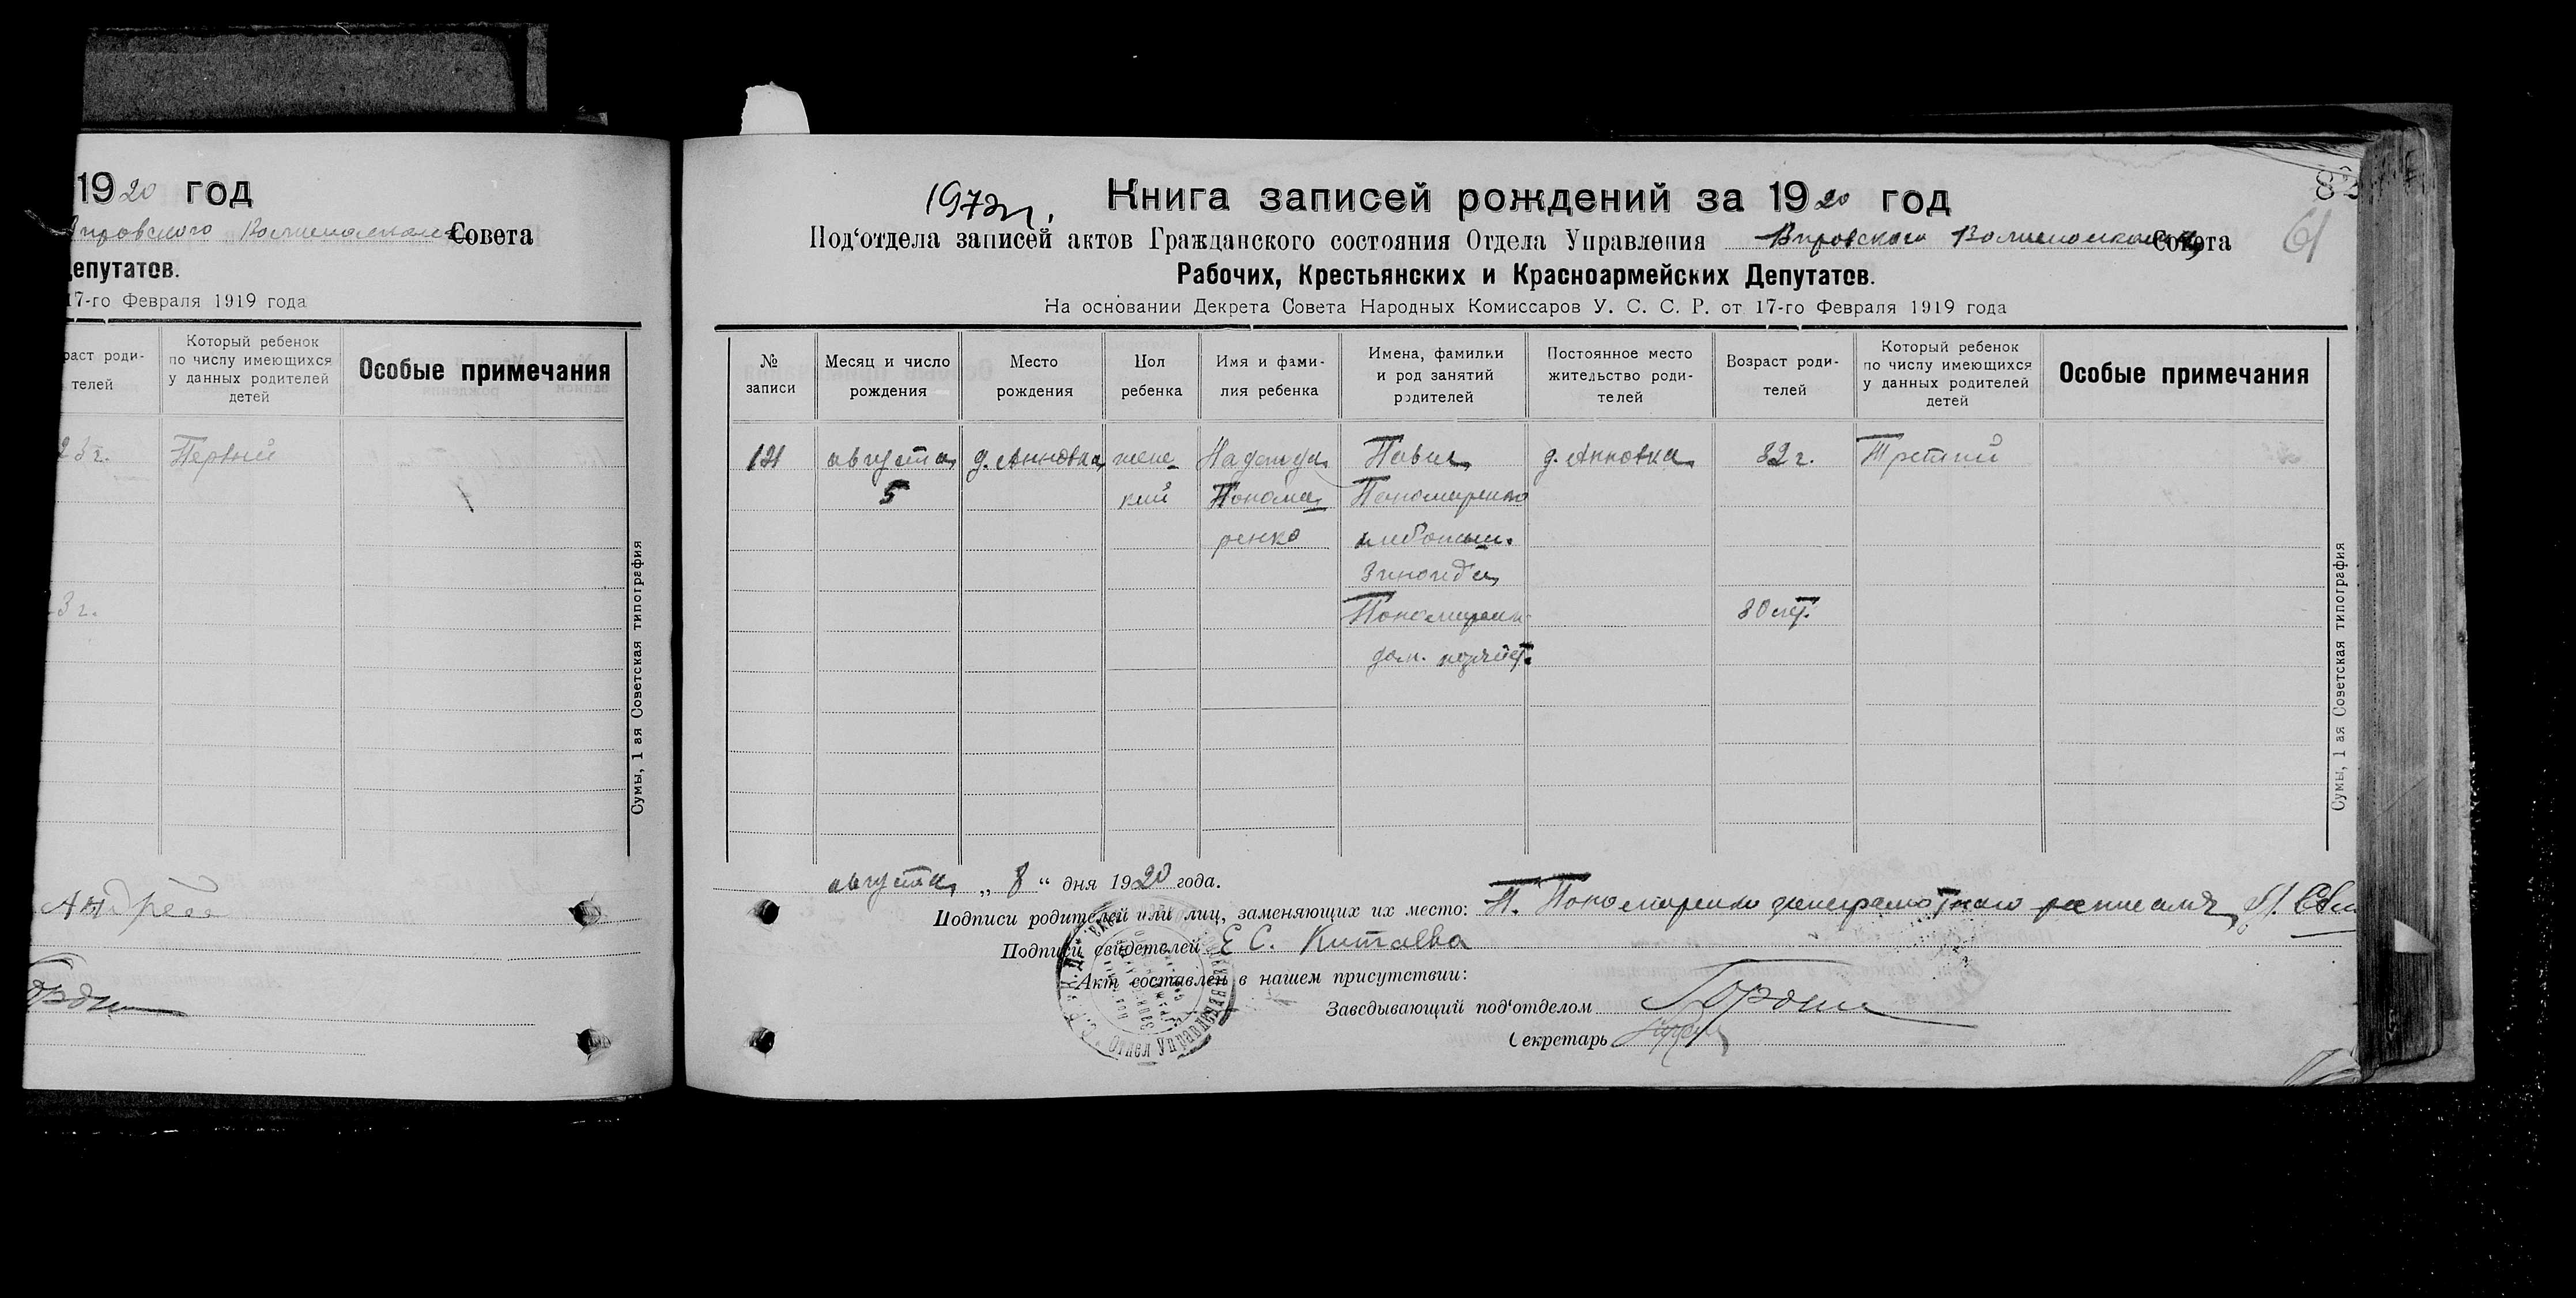 1920 год
Совета
депутатов.
17-го Февраля 1919 года
раст роди-
телей
Который ребенок
по числу имеющихся
у данных родителей
детей
Особые примечания
23 г.
Первый
3 г.
Сумы, 1 ая Советская типография
Андрей
82
61
Книга записей рождений за 1920 год
Под‘отдела записей актов Гражданского состояния Отдела Управления Вировского Совета
Рабочих, Крестьянских и Красноармейских Депутатов.
На основании Декрета Совета Народных Комиссаров У. С. С. Р. от 17-го Февраля 1919 года
№
записи
Месяц и число
рождения
Место
рождения
Пол
ребенка
Имя и фами-
лия ребенка
Имена, фамилии
и род занятий
родителей
Постоянное место
жительство роди-
телей
Возраст роди-
телей
Который ребенок
по числу имеющихся
у данных родителей
детей
Особые примечания
121
августа
5
д. Анновка
женс-
кий
Надежда
Понома-
ренко
Павел
Пономаренко
хлебопаш.
Зинаида
Пономаренк
дом. хозяйст.
д. Анновка
32 г.
30 лет.
Третий
Сумы, 1 ая Советская типография
августа „ 8 “ дня 1920 года.
Подписи родителей или лиц, заменяющих их место: П. Пономаренко
Подписи свидетелей Е С. Китаева
Акт составлен в нашем присутствии:
Заведывающий под‘отделом
Секретарь
Отдел Управления